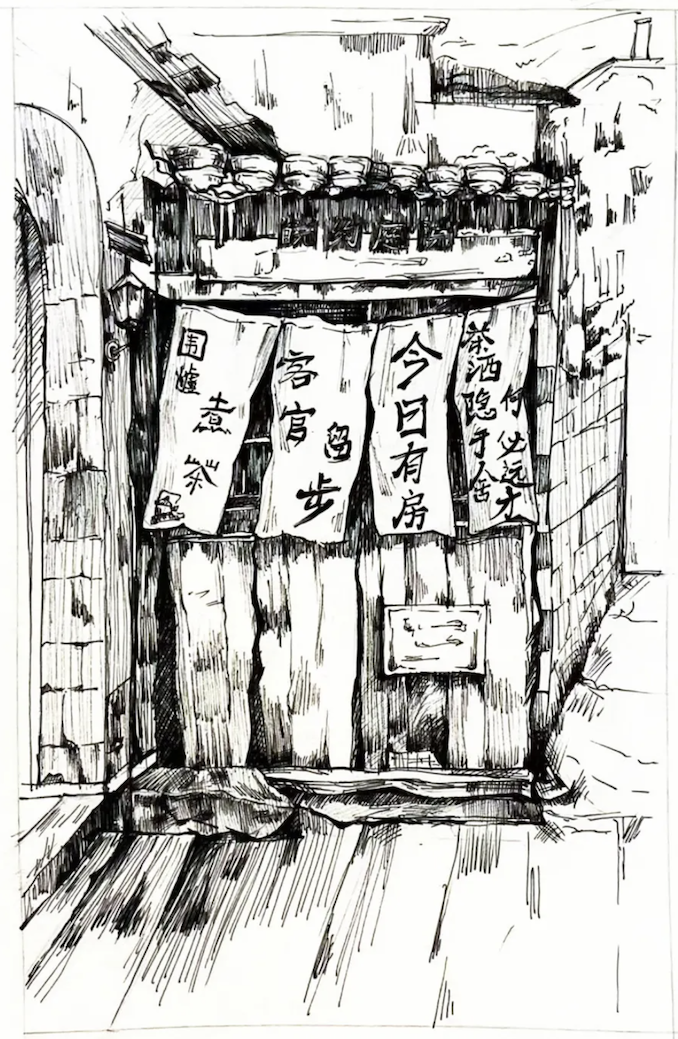 围爐
煮茶
客官
留步
今日有房
茶酒隐于人舍
何必远方